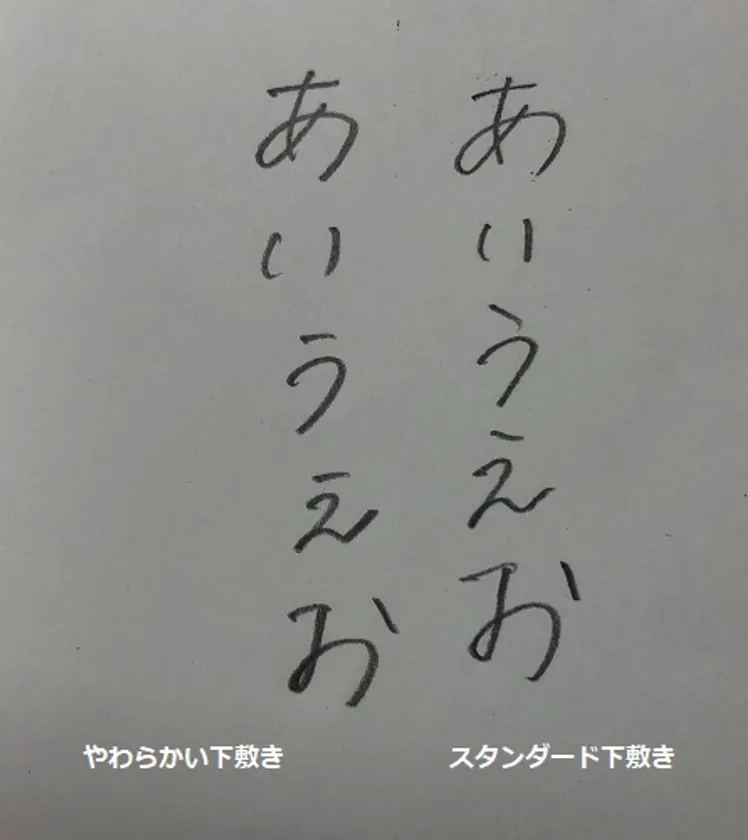 あいうえお
あいうえお
やわらかい下敷き
スタンダード下敷き